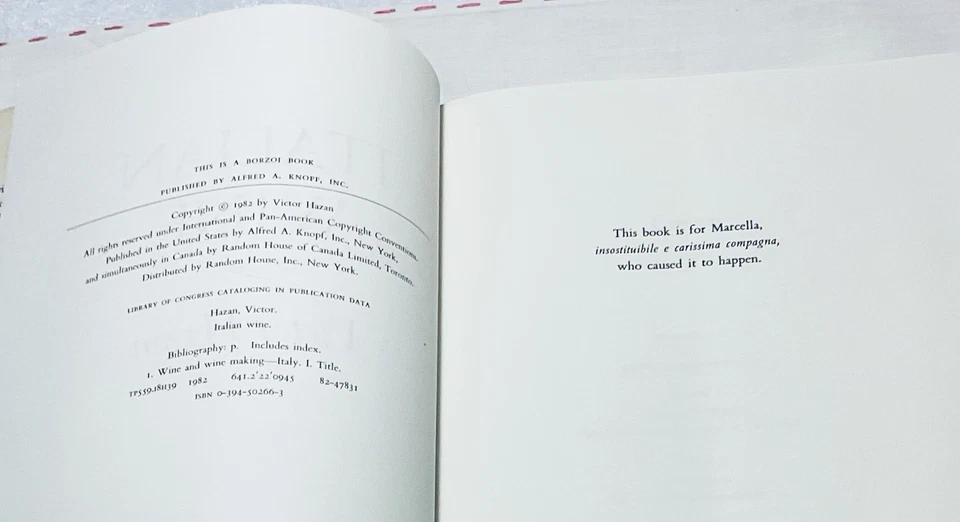 THIS IS A BORZOI BOOK
PUBLISHED BY ALFRED A. KNOPF, INC.
Copyright © 1982 by Victor Hazan
All rights reserved under International and Pan-American Copyright Conventions.
Published in the United States by Alfred A. Knopf, Inc., New York,
and simultaneously in Canada by Random House of Canada Limited, Toronto.
Distributed by Random House, Inc., New York.
LIBRARY OF CONGRESS CATALOGING IN PUBLICATION DATA
Hazan, Victor.
Italian wine.
Bibliography: p. Includes index.
1. Wine and wine making—Italy. I. Title.
TP559.I8H39 1982 641.2'22'0945 82-47831
ISBN 0-394-50266-3
This book is for Marcella,
insostituibile e carissima compagna,
who caused it to happen.